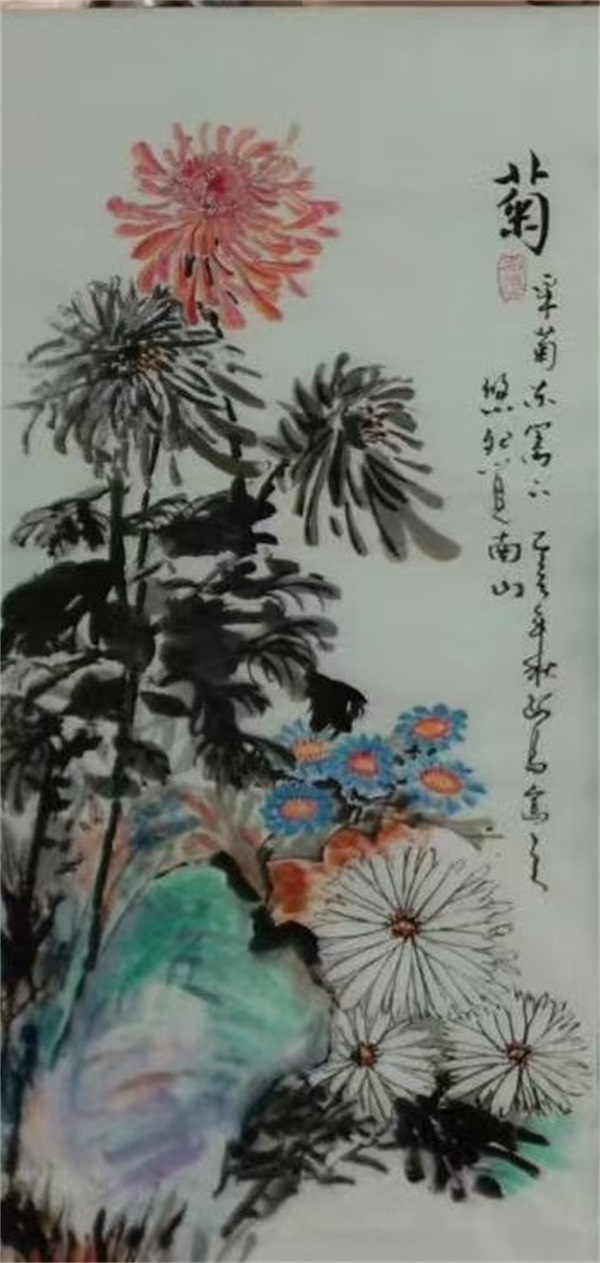 菊
采菊东篱下
悠然见南山
己亥年秋